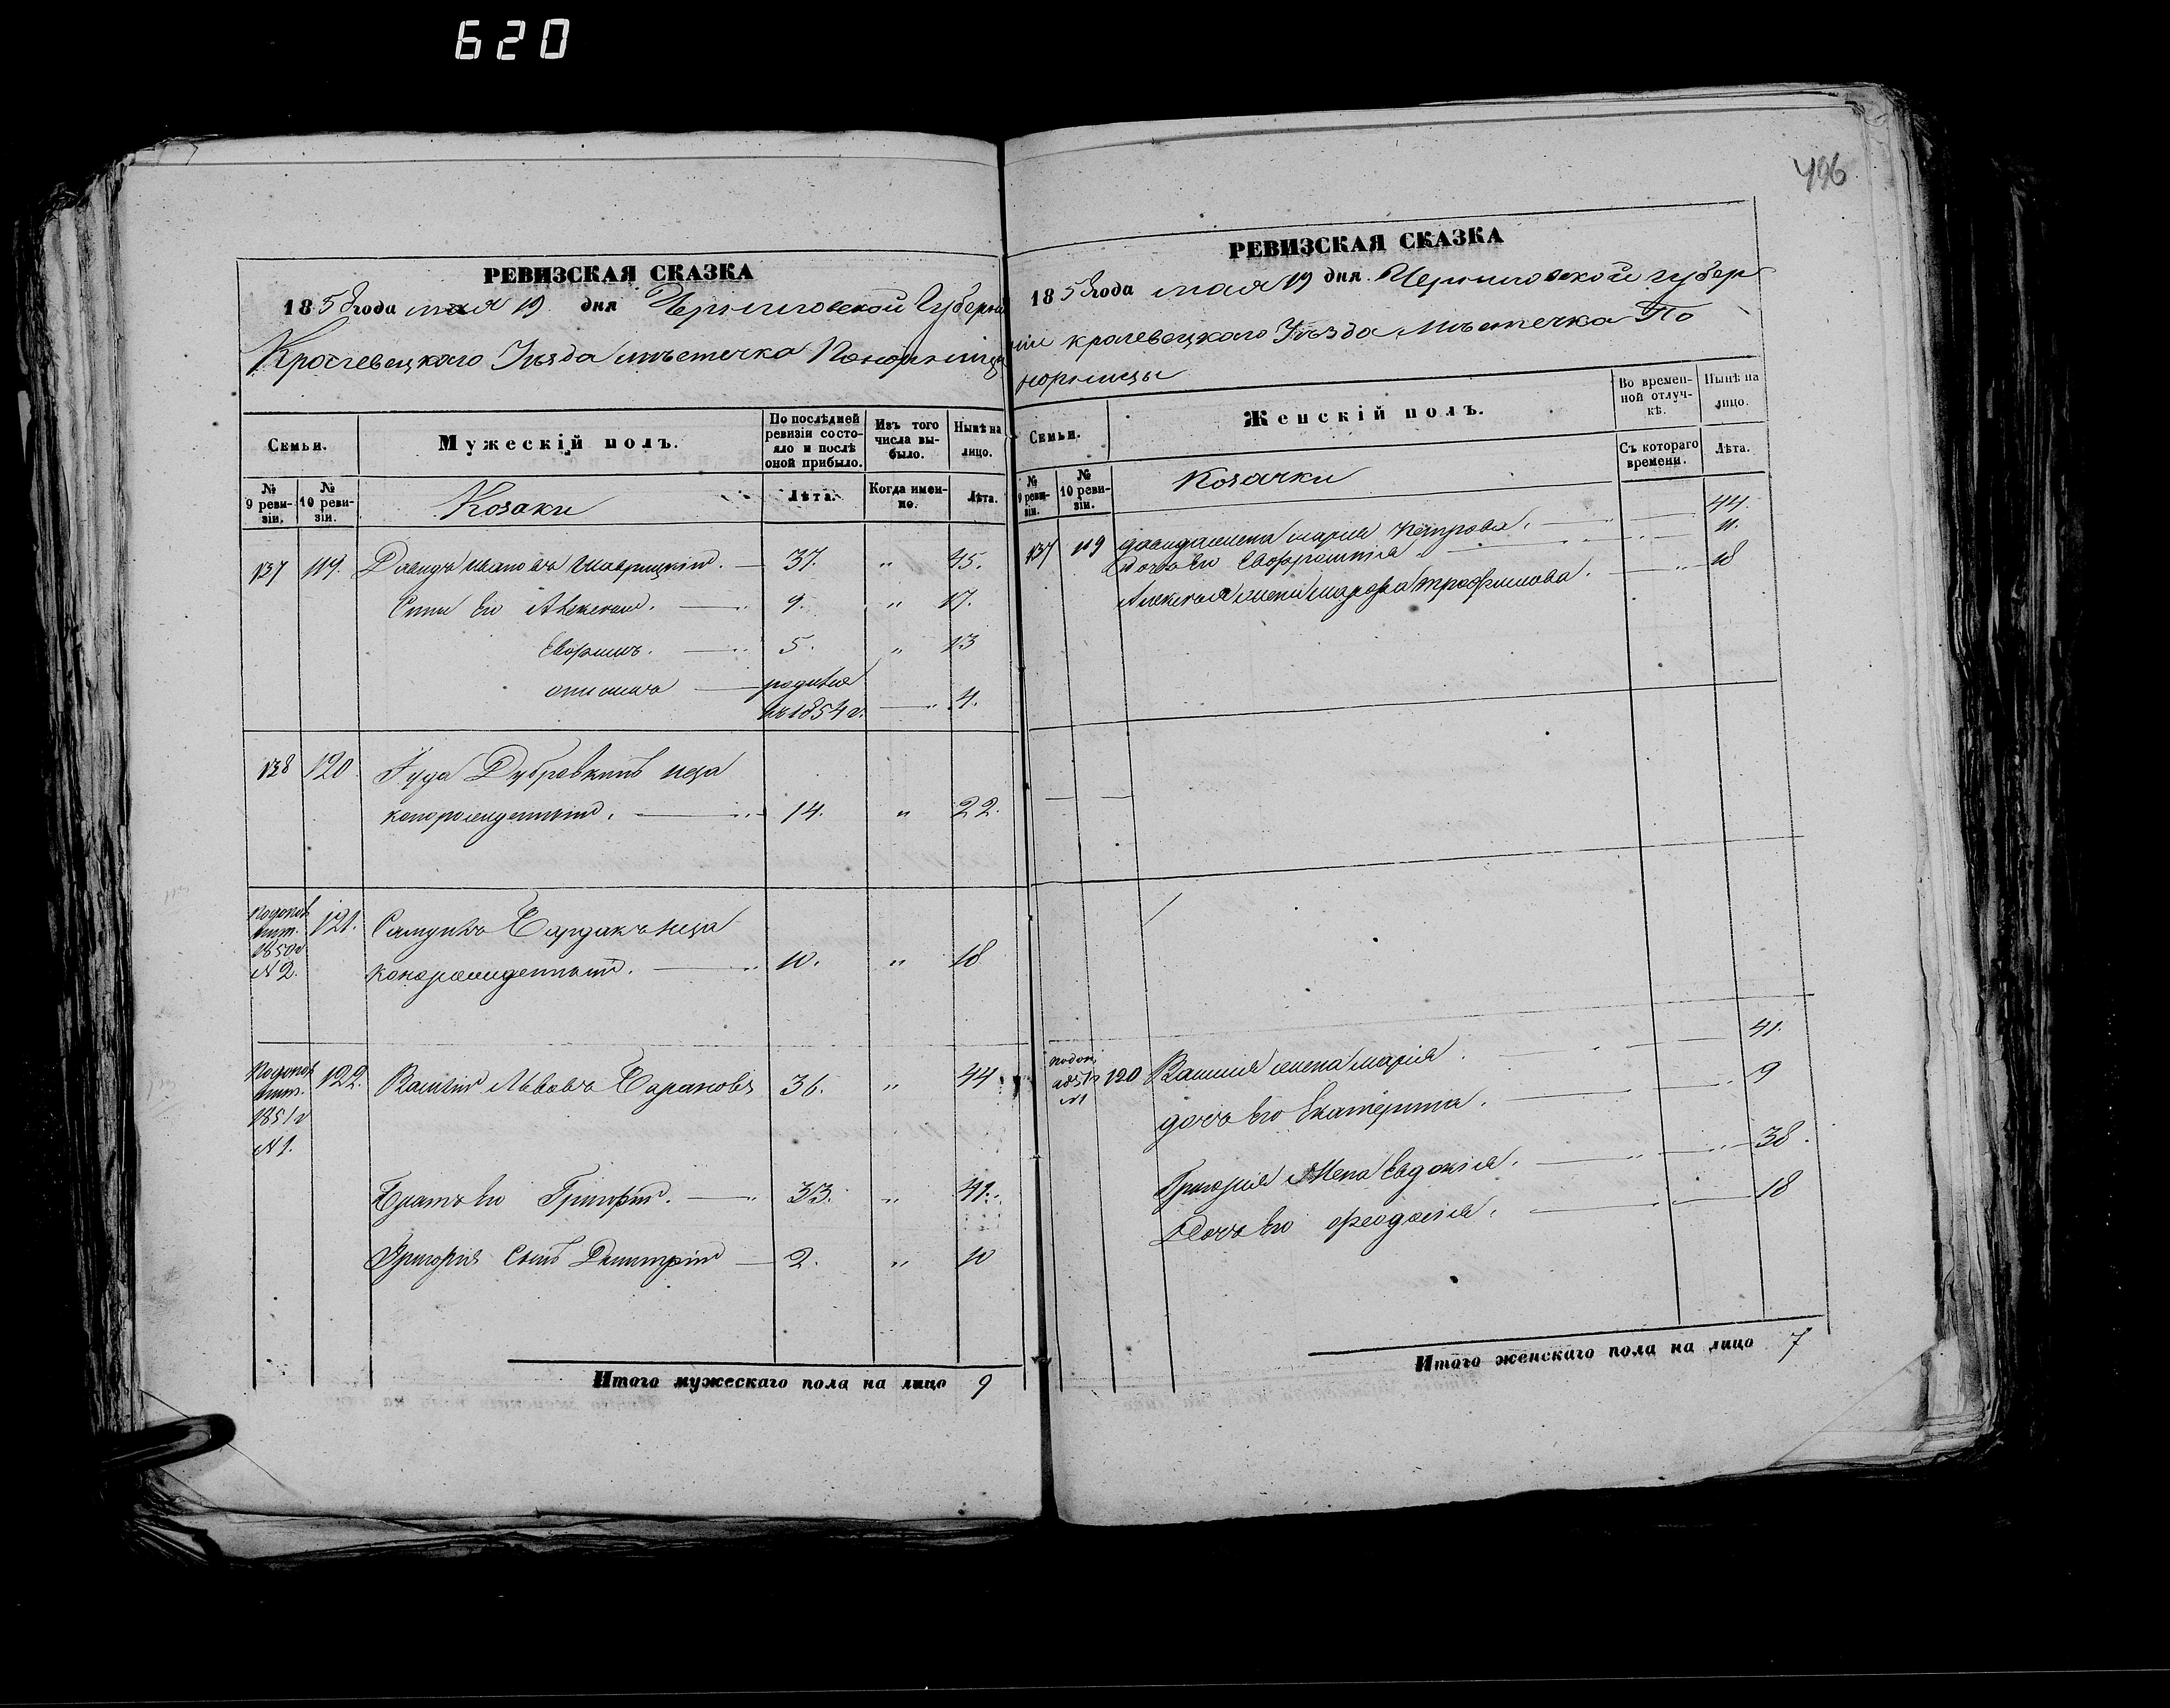 620
496
РЕВИЗСКАЯ СКАЗКА
1858 года мая 19 дня Черниговской Губерніи
Кролевецкаго Уѣзда мѣстечка Понорницы
Семьи.
Мужескій полъ.
По послѣдней ревизіи состояло и послѣ оной прибыло.
Изъ того числа выбыло.
Нынѣ на лицо.
№ 9 ревизіи.
№ 10 ревизіи.
Козаки
Лѣта.
Когда именно.
Лѣта.
137 119. Давидъ Ивановъ 37. " 45.
Сыны его Алексей. 9. " 17.
Ефимъ. 5. " 13
родился
въ 1854 г. 4.
138 120. Іуда Дубровкинъ
14. " 22.
1850 г
№ 2.
121. Самуилъ
10. " 18
1851 г
№ 1.
122. Василій Львовъ 36. " 44
Братъ его Григорій. 33. " 41.
Григорія Сынъ Димитрій 2. " 10
Итого мужескаго пола на лицо 9
РЕВИЗСКАЯ СКАЗКА
1858 года мая 19 дня Черниговской губер
ніи кролевецкаго Уѣзда Мѣстечка По
норницы
Семьи.
Женскій полъ.
Во временной отлучкѣ.
Нынѣ на лицо.
№ 9 ревизіи.
№ 10 ревизіи.
Козачки
Съ котораго времени.
Лѣта.
137 119 Давида жена марія Петрова. 44.
Дочь его Евфросинія 11.
Алексея жена Марфа трофимова. 18
1851 г
№1
120 Василія жена марія. 41.
дочь его Екатерина. 9
Григорія жена Евдокія. 38.
Дочь его феодосія. 18
Итого женскаго пола на лицо 7